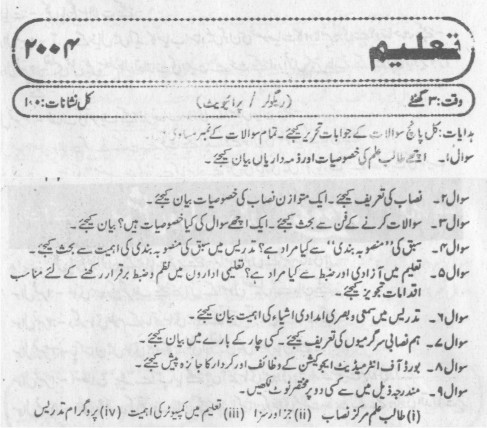 تعلیم ۲۰۰۴
وقت: ۳ گھنٹے (ریگولر / پرائیویٹ) کل نشانات: ۱۰۰
ہدایات: کل پانچ سوالات کے جوابات تحریر کیجئے۔ تمام سوالات کے نمبر مساوی
سوال۱۔ اچھے طالب علم کی خصوصیات اور ذمہ داریاں بیان کیجئے۔
سوال۲۔ نصاب کی تعریف کیجئے۔ ایک متوازن نصاب کی خصوصیات بیان کیجئے۔
سوال۳۔ سوالات کرنے کے فن سے بحث کیجئے۔ ایک اچھے سوال کی کیا خصوصیات ہیں؟ بیان کیجئے۔
سوال۴۔ سبق کی "منصوبہ بندی" سے کیا مراد ہے؟ تدریس میں سبق کی منصوبہ بندی کی اہمیت سے بحث کیجئے۔
سوال۵۔ تعلیم میں آزادی اور ضبط سے کیا مراد ہے؟ تعلیمی اداروں میں نظم و ضبط برقرار رکھنے کے لئے مناسب
اقدامات تجویز کیجئے۔
سوال۶۔ تدریس میں سمعی و بصری امدادی اشیاء کی اہمیت بیان کیجئے۔
سوال۷۔ ہم نصابی سرگرمیوں کی تعریف کیجئے۔ کسی چار کے بارے میں بیان کیجئے۔
سوال۸۔ بورڈ آف انٹرمیڈیٹ ایجوکیشن کے وظائف اور کردار کا جائزہ پیش کیجئے۔
سوال۹۔ مندرجہ ذیل میں سے کسی دو پر مختصر نوٹ لکھیں۔
(i) طالب علم مرکز نصاب (ii) جزا اور سزا (iii) تعلیم میں کمپیوٹر کی اہمیت (iv) پروگرام تدریس